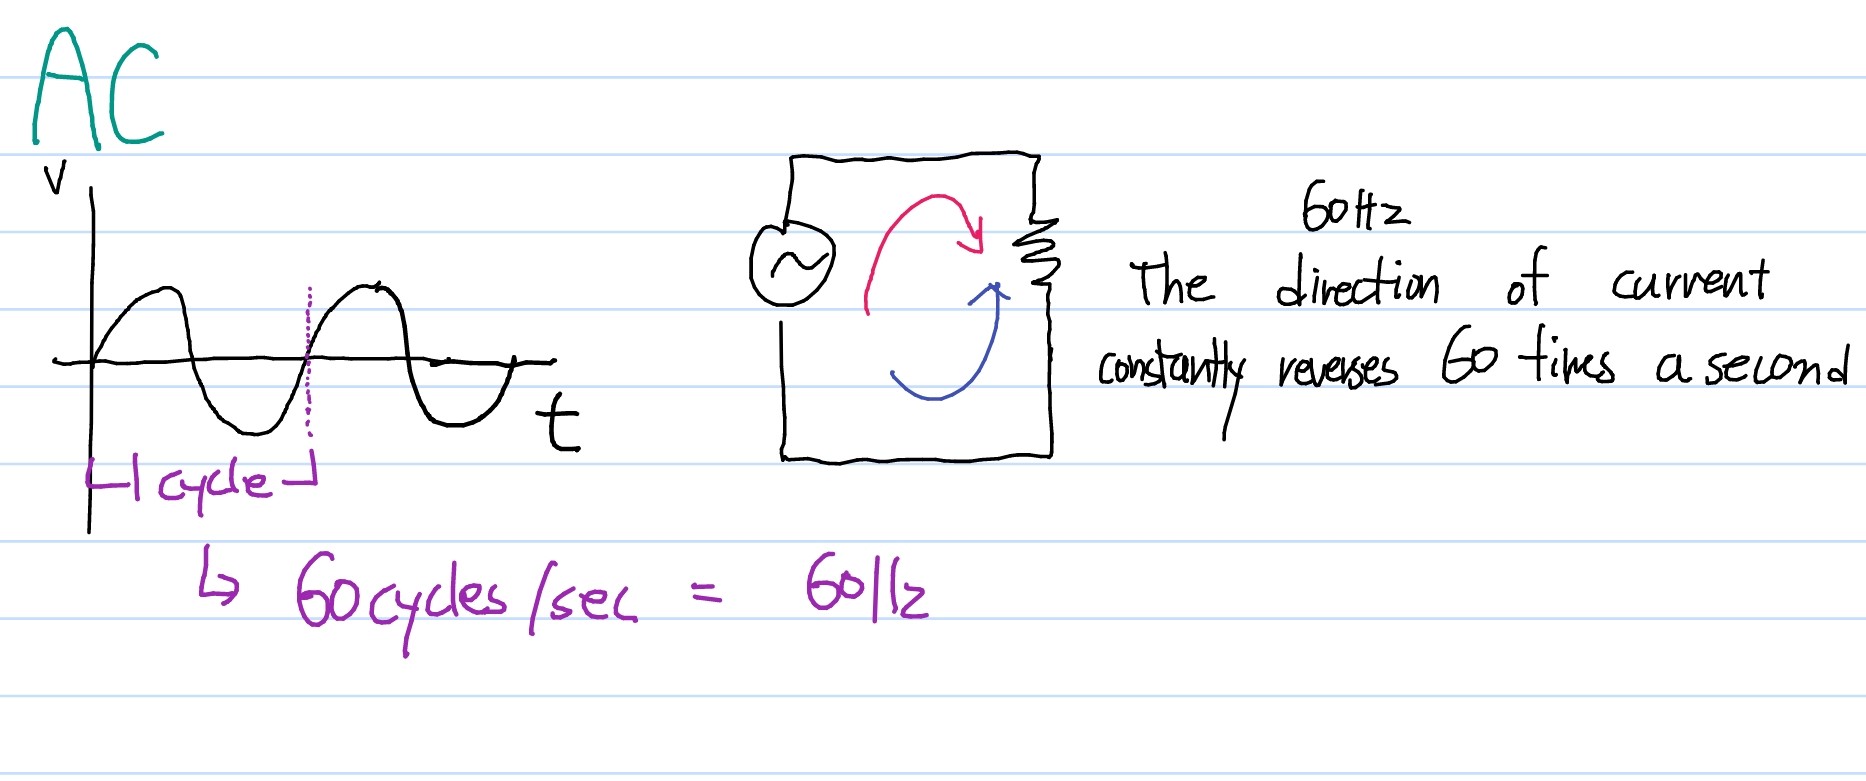 AC
V
t
1 cycle
↳ 60cycles/sec = 60Hz
60Hz
The direction of current
constantly reverses 60 times a second